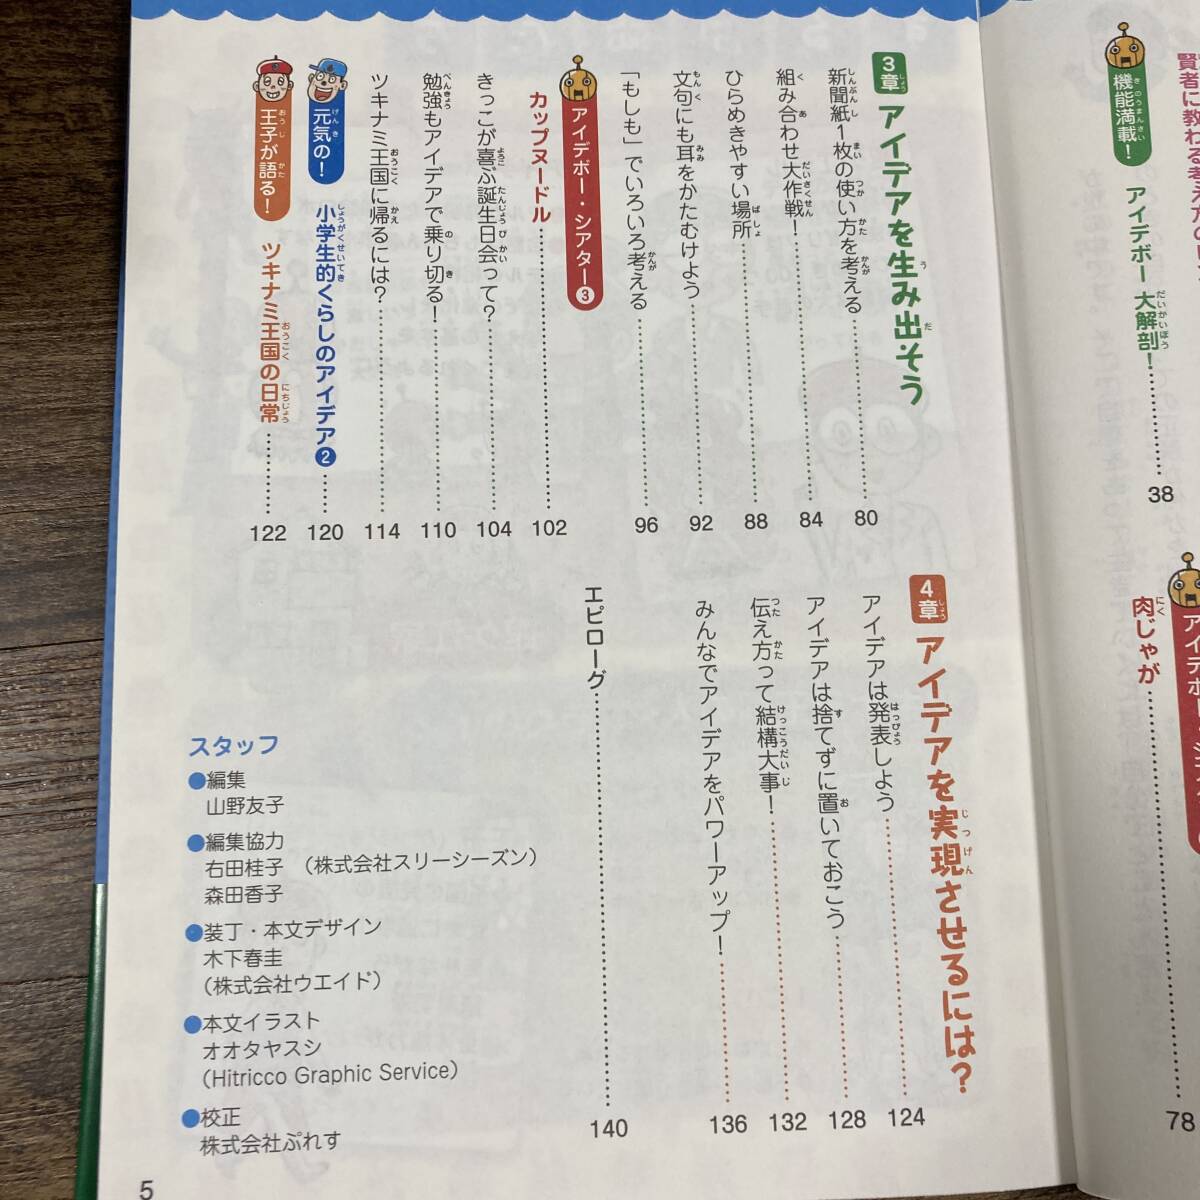 機能満載！ アイデボー大解剖！ 38
肉じゃが
78
3章 アイデアを生み出そう
新聞紙1枚の使い方を考える 80
組み合わせ大作戦！ 84
ひらめきやすい場所 88
文句にも耳をかたむけよう 92
「もしも」でいろいろ考える 96
アイデボー・シアター❸
カップヌードル 102
きっこが喜ぶ誕生日会って？ 104
勉強もアイデアで乗り切る！ 110
ツキナミ王国に帰るには？ 114
元気の！ 小学生的くらしのアイデア❷ 120
王子が語る！ ツキナミ王国の日常 122
4章 アイデアを実現させるには？
アイデアは発表しよう 124
アイデアは捨てずに置いておこう 128
伝え方って結構大事！ 132
みんなでアイデアをパワーアップ！ 136
エピローグ 140
スタッフ
●編集
山野友子
●編集協力
右田桂子（株式会社スリーシーズン）
森田香子
●装丁・本文デザイン
木下春圭
（株式会社ウエイド）
●本文イラスト
オオタヤスシ
（Hitricco Graphic Service）
●校正
株式会社ぷれす
5